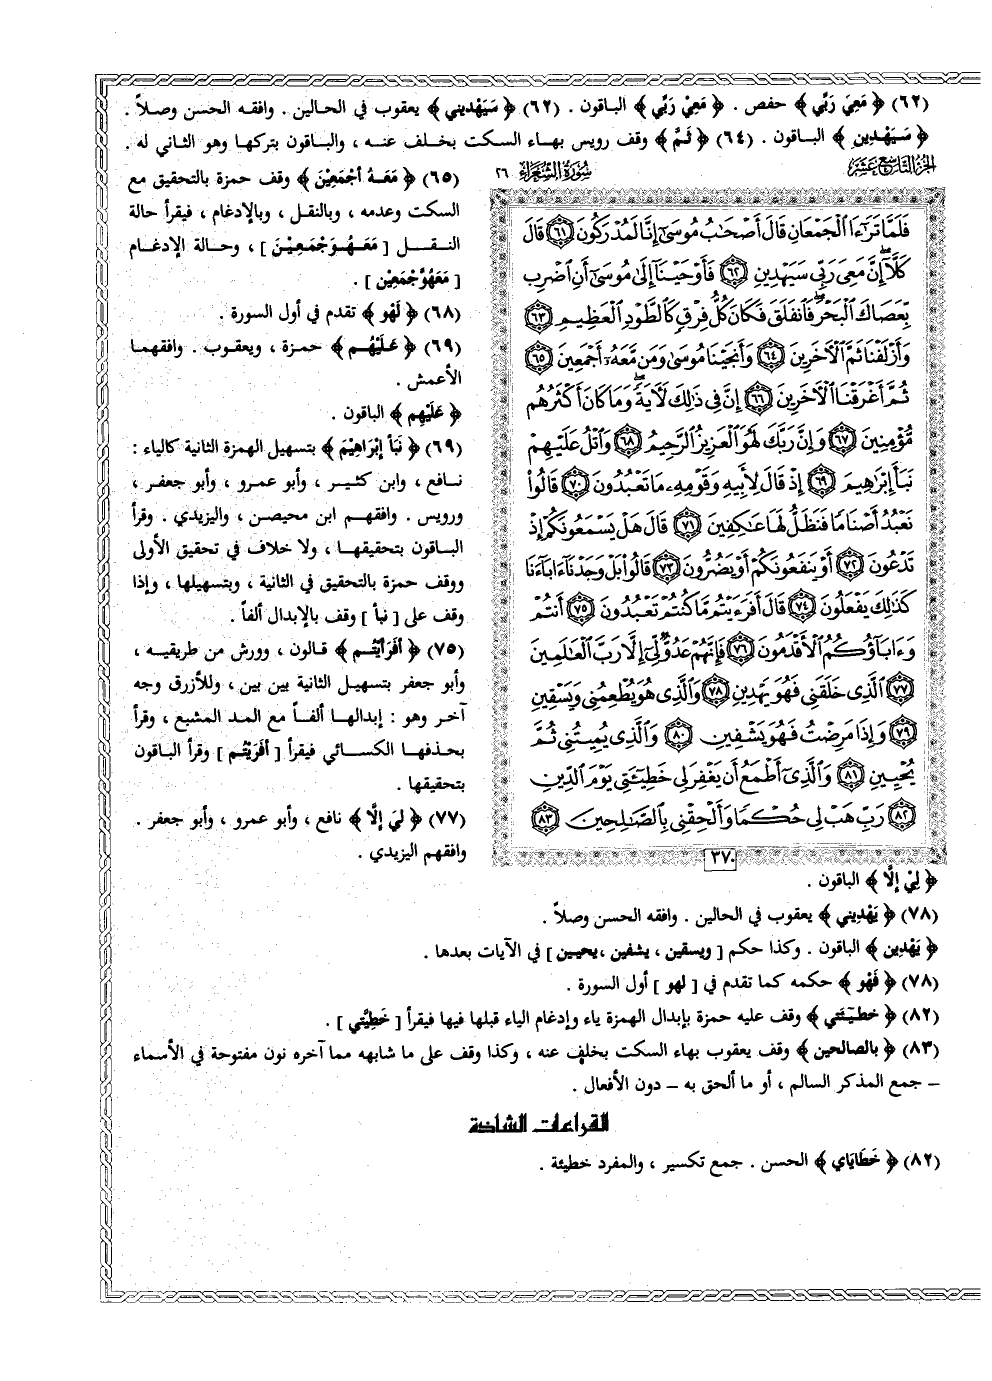 (٦٢) ﴿ مَعِيَ رَبِّي ﴾ حفص . ﴿ مَعِيْ رَبِّي ﴾ الباقون . (٦٢) ﴿ سَيَهْدِيني ﴾ يعقوب في الحالين . وافقه الحسن وصلاً .
﴿ سَيَهْدِينِ ﴾ الباقون . (٦٤) ﴿ ثَمَّ ﴾ وقف رويس بهاء السكت بخلف عنه ، والباقون بتركها وهو الثاني له .
الجزء التاسع عشر
سورة الشعراء ٢٦
فَلَمَّا تَرَٰٓءَا ٱلْجَمْعَانِ قَالَ أَصْحَٰبُ مُوسَىٰٓ إِنَّا لَمُدْرَكُونَ ٦١ قَالَ
كَلَّآ إِنَّ مَعِيَ رَبِّي سَيَهْدِينِ ٦٢ فَأَوْحَيْنَآ إِلَىٰ مُوسَىٰٓ أَنِ ٱضْرِب
بِّعَصَاكَ ٱلْبَحْرَ فَٱنفَلَقَ فَكَانَ كُلُّ فِرْقٍ كَٱلطَّوْدِ ٱلْعَظِيمِ ٦٣
وَأَزْلَفْنَا ثَمَّ ٱلْءَاخَرِينَ ٦٤ وَأَنجَيْنَا مُوسَىٰ وَمَن مَّعَهُۥٓ أَجْمَعِينَ ٦٥
ثُمَّ أَغْرَقْنَا ٱلْءَاخَرِينَ ٦٦ إِنَّ فِي ذَٰلِكَ لَءَايَةً وَمَا كَانَ أَكْثَرُهُم
مُّؤْمِنِينَ ٦٧ وَإِنَّ رَبَّكَ لَهُوَ ٱلْعَزِيزُ ٱلرَّحِيمُ ٦٨ وَٱتْلُ عَلَيْهِمْ
نَبَأَ إِبْرَٰهِيمَ ٦٩ إِذْ قَالَ لِأَبِيهِ وَقَوْمِهِۦ مَا تَعْبُدُونَ ٧٠ قَالُوا۟
نَعْبُدُ أَصْنَامًا فَنَظَلُّ لَهَا عَٰكِفِينَ ٧١ قَالَ هَلْ يَسْمَعُونَكُمْ إِذْ
تَدْعُونَ ٧٢ أَوْ يَنفَعُونَكُمْ أَوْ يَضُرُّونَ ٧٣ قَالُوا۟ بَلْ وَجَدْنَآ ءَابَآءَنَا
كَذَٰلِكَ يَفْعَلُونَ ٧٤ قَالَ أَفَرَءَيْتُم مَّا كُنتُمْ تَعْبُدُونَ ٧٥ أَنتُمْ
وَءَابَآؤُكُمُ ٱلْأَقْدَمُونَ ٧٦ فَإِنَّهُمْ عَدُوٌّ لِّيٓ إِلَّا رَبَّ ٱلْعَٰلَمِينَ
٧٧ ٱلَّذِي خَلَقَنِي فَهُوَ يَهْدِينِ ٧٨ وَٱلَّذِي هُوَ يُطْعِمُنِي وَيَسْقِينِ
٧٩ وَإِذَا مَرِضْتُ فَهُوَ يَشْفِينِ ٨٠ وَٱلَّذِي يُمِيتُنِي ثُمَّ
يُحْيِينِ ٨١ وَٱلَّذِيٓ أَطْمَعُ أَن يَغْفِرَ لِي خَطِيٓـَٔتِي يَوْمَ ٱلدِّينِ
٨٢ رَبِّ هَبْ لِي حُكْمًا وَأَلْحِقْنِي بِٱلصَّٰلِحِينَ ٨٣
٣٧٠
(٦٥) ﴿ مَعَهُ أجْمَعِيْنَ ﴾ وقف حمزة بالتحقيق مع
السكت وعدمه ، وبالنقل ، وبالإدغام ، فيقرأ حالة
النقــل [ مَعَهُوَجْمَعِيْنَ ] ، وحالة الإدغام
[ مَعَهُوَّجْمَعِيْن ] .
(٦٨) ﴿ لَهْوَ ﴾ تقدم في أول السورة .
(٦٩) ﴿ عَلَيْهُم ﴾ حمزة ، ويعقوب . وافقهما
الأعمش .
﴿ عَلَيْهِم ﴾ الباقون .
(٦٩) ﴿ نَبَأ إبْرَاهِيْمَ ﴾ بتسهيل الهمزة الثانية كالياء :
نافع ، وابن كثير ، وأبو عمرو ، وأبو جعفر ،
ورويس . وافقهم ابن محيصن ، واليزيدي . وقرأ
الباقون بتحقيقها ، ولا خلاف في تحقيق الأولى
ووقف حمزة بالتحقيق في الثانية ، وبتسهيلها ، وإذا
وقف على [ نبأ ] وقف بالإبدال ألفاً .
(٧٥) ﴿ أفَرَأيْتُم ﴾ قالون ، وورش من طريقيه ،
وأبو جعفر بتسهيل الثانية بين بين ، وللأزرق وجه
آخر وهو : إبدالها ألفاً مع المد المشبع ، وقرأ
بحذفها الكسائي فيقرأ [ أفَرَيْتُم ] وقرأ الباقون
بتحقيقها .
(٧٧) ﴿ لِيَ إلَّا ﴾ نافع ، وأبو عمرو ، وأبو جعفر .
وافقهم اليزيدي .
﴿ لِيْ إلَّا ﴾ الباقون .
(٧٨) ﴿ يَهْدِيني ﴾ يعقوب في الحالين . وافقه الحسن وصلاً .
﴿ يَهْدِينِ ﴾ الباقون . وكذا حكم [ ويسقين ، يشفين ، يحيين ] في الآيات بعدها .
(٧٨) ﴿ فَهْو ﴾ حكمه كما تقدم في [ لهو ] أول السورة .
(٨٢) ﴿ خطيـئتي ﴾ وقف عليه حمزة بإبدال الهمزة ياء وإدغام الياء قبلها فيها فيقرأ [ خَطِيَّتي ] .
(٨٣) ﴿ بالصالحين ﴾ وقف يعقوب بهاء السكت بخلف عنه ، وكذا وقف على ما شابهه مما آخره نون مفتوحة في الأسماء
– جمع المذكر السالم ، أو ما ألحق به – دون الأفعال .
القراءات الشاذة
(٨٢) ﴿ خَطَايَاي ﴾ الحسن . جمع تكسير ، والمفرد خطيئة .